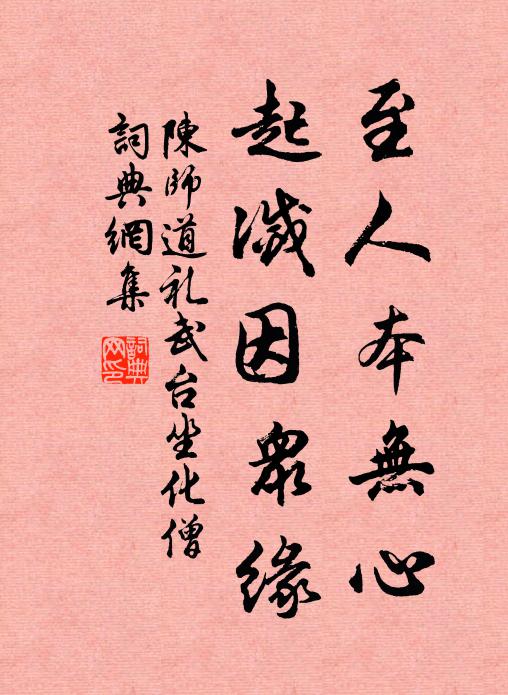 至人本無心
起滅因眾緣
陳師道礼武台坐化僧
詞典網集
詞典網印